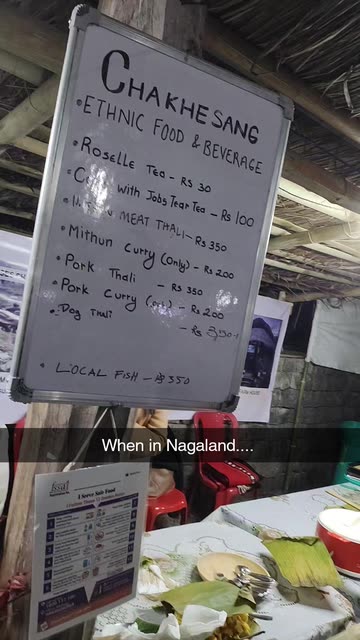 CHAKHESANG
• ETHNIC FOOD & BEVERAGE
• ROSELLE TEA - RS 30
• with JOBS TEAR TEA - RS 100
• MEAT THALI - RS 350
• MITHUN CURRY (ONLY) - RS 200
• PORK THALI - RS 350
• PORK CURRY (only) - RS 200
• DOG THALI - RS
• LOCAL FISH - RS 350
When in Nagaland....
fssai
I Serve Safe Food